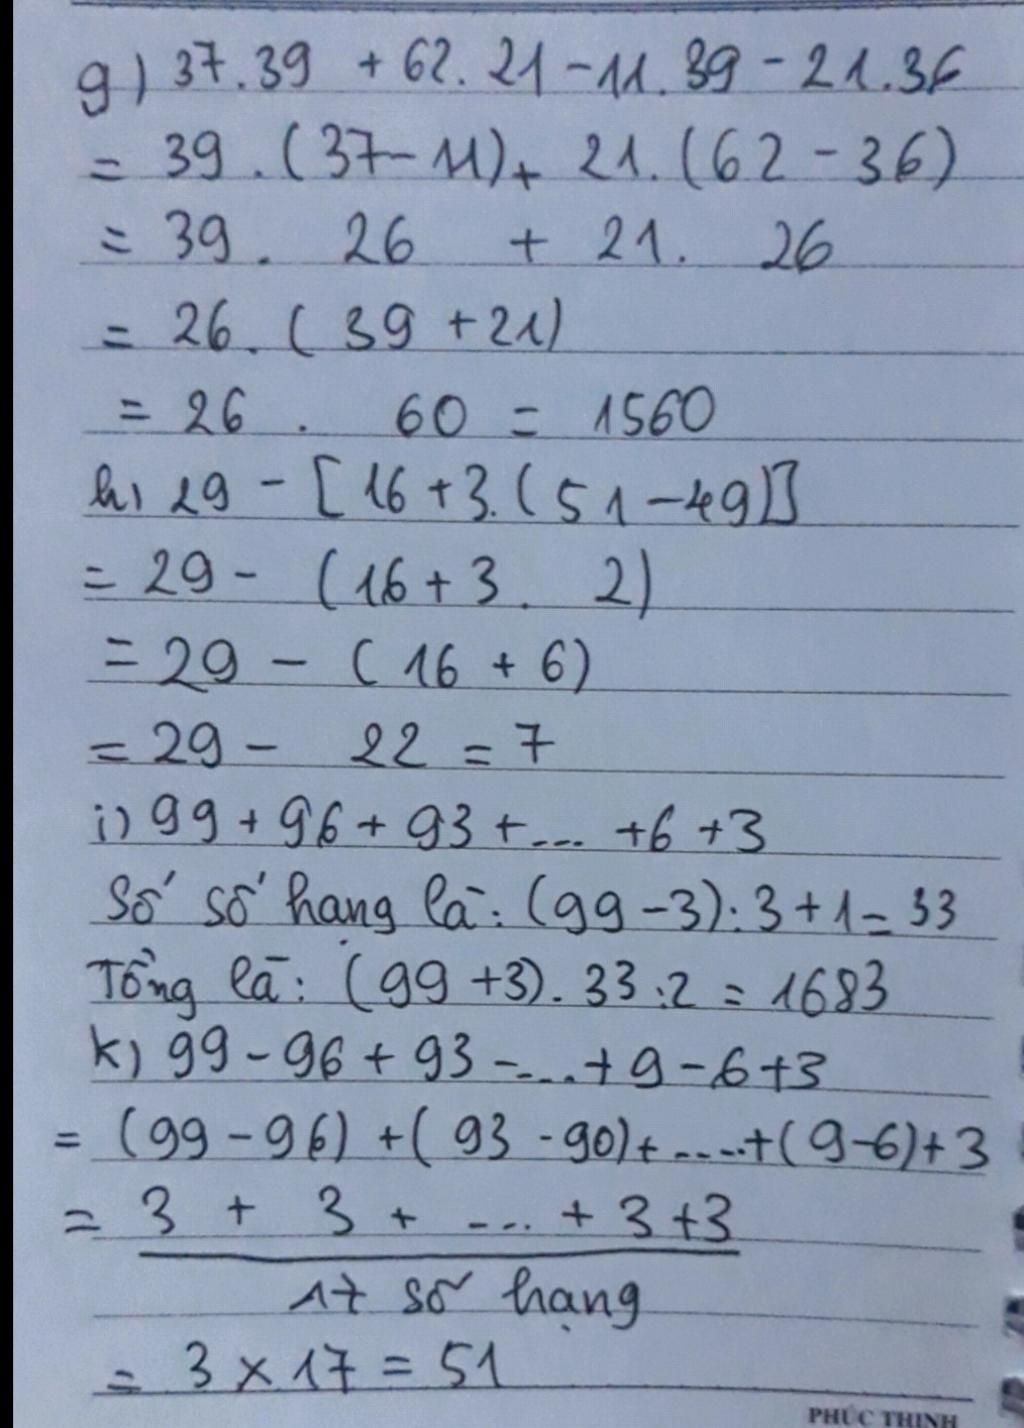 g) 37.39 + 62.21 - 11.39 - 21.36
= 39.(37-11)+ 21.(62-36)
= 39. 26 + 21. 26
= 26.(39+21)
= 26 . 60 = 1560
h, 29 - [16+3.(51-49)]
= 29 - (16+3. 2)
= 29 - (16 + 6)
= 29 - 22 = 7
i) 99 + 96 + 93 +... +6 +3
Số số hạng là: (99-3):3+1= 33
Tổng là: (99+3).33:2 = 1683
k, 99 - 96 + 93 -....+ 9 - 6 + 3
= (99-96) +(93-90)+.....+(9-6)+3
= 3 + 3 + .... + 3 +3
17 số hạng
= 3 x 17 = 51
PHÚC THỊNH